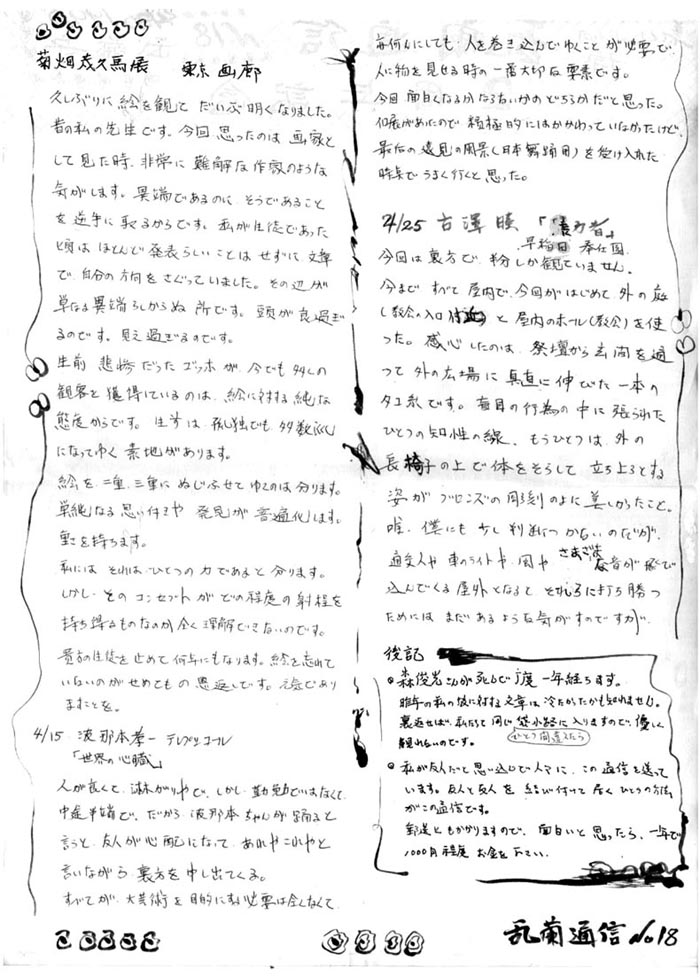 菊畑茂久馬展　東京画廊
久しぶりに絵を観て だいぶ明くなりました。
昔の私の先生です。今回思ったのは 画家と
して見た時、非常に 難解な作家のような
気がします。異端であるのに、そうであること
を逆手に取るからです。私が生徒であった
頃は ほとんど発表らしいことは せずに 文章
で、自分の方向をさぐっていました。その辺が
単なる異端らしからぬ 所です。頭が良過ぎ
るのです。見え過ぎるのです。
生前 悲惨だった ゴッホが、今でも多くの
観客を獲得しているのは、絵に対する純な
態度からです。生前は、孤独でも 多数派
になってゆく 素地があります。
絵を 二重、三重に ねじふせてゆくのは分ります。
単純なる思い付きや 発見が 普遍化します。
重さを持ちます。
私には それは、ひとつの力であると分ります。
しかし、そのコンセプトがどの程度の射程を
持ち得るものなのか全く理解できないのです。
貴方の生徒を止めて何年にもなります。絵を忘れて
いないのがせめてもの恩返しです。元気であり
ますことを。
4/15 波那本孝一 テレプシコール
「世界の心臓」
人が良くて、淋しがりやで、しかし、勤勉ではなくて、
中途半端で、だから、波那本ちゃんが踊ると
言うと、友人が心配になって、あれやこれやと
言いながら、裏方を申し出てくる。
すべてが、大芸術を目的にする必要は全くなくて、
何にしても、人を巻き込んでゆくことが必要で、
人に物を見せる時の一番大切な要素です。
今回 面白くなるかならないかのどちらかだと思った。
個展があたので 積極的にはかかわっていなかったけど、
最後の遠見の風景(日本舞踊用)を受け入れた
時点でうまく行くと思った。
4/25 古澤 暎 「　　者」
早稲田 奉仕園
今回は裏方で、半分しか観ていません。
今まで すべて 屋内で、今回がはじめて、外の庭
(教会の入口付近)と 屋内のホール(教会)を使
った。感心したのは、祭壇から玄関を通
って 外の広場に 真直に伸びた一本の
タコ糸です。盲目の行為の中に張られた
ひとつの知性の線、もうひとつは、外の
長椅子の上で体をそらして 立ち上ろうとする
姿が ブロンズの彫刻のよに美しかったこと。
唯、僕にも 少し判断つかないのだが、
通交人や 車のライトや、風や さまざまな音が飛び
込んでくる屋外となると、それらに打ち勝つ
ためには まだあるような気がすのですが。
後記
森俊光さんが死んで丁度 一年経ちます。
昨年の私の彼に対する文章は冷たかたかも知れません。
裏返せば、私たちも同じ袋小路に入りますので、優しく
なれないのです。
ひとつ間違えたら
私が友人だと思い込んで人々に、この通信を送って
います。友人と友人を 結び付けて居く ひとつの方法
がこの通信です。
郵送ともかかりますので、面白いと思ったら、一年で
1000円程度 お金を下さい。
乱蘭通信 No18